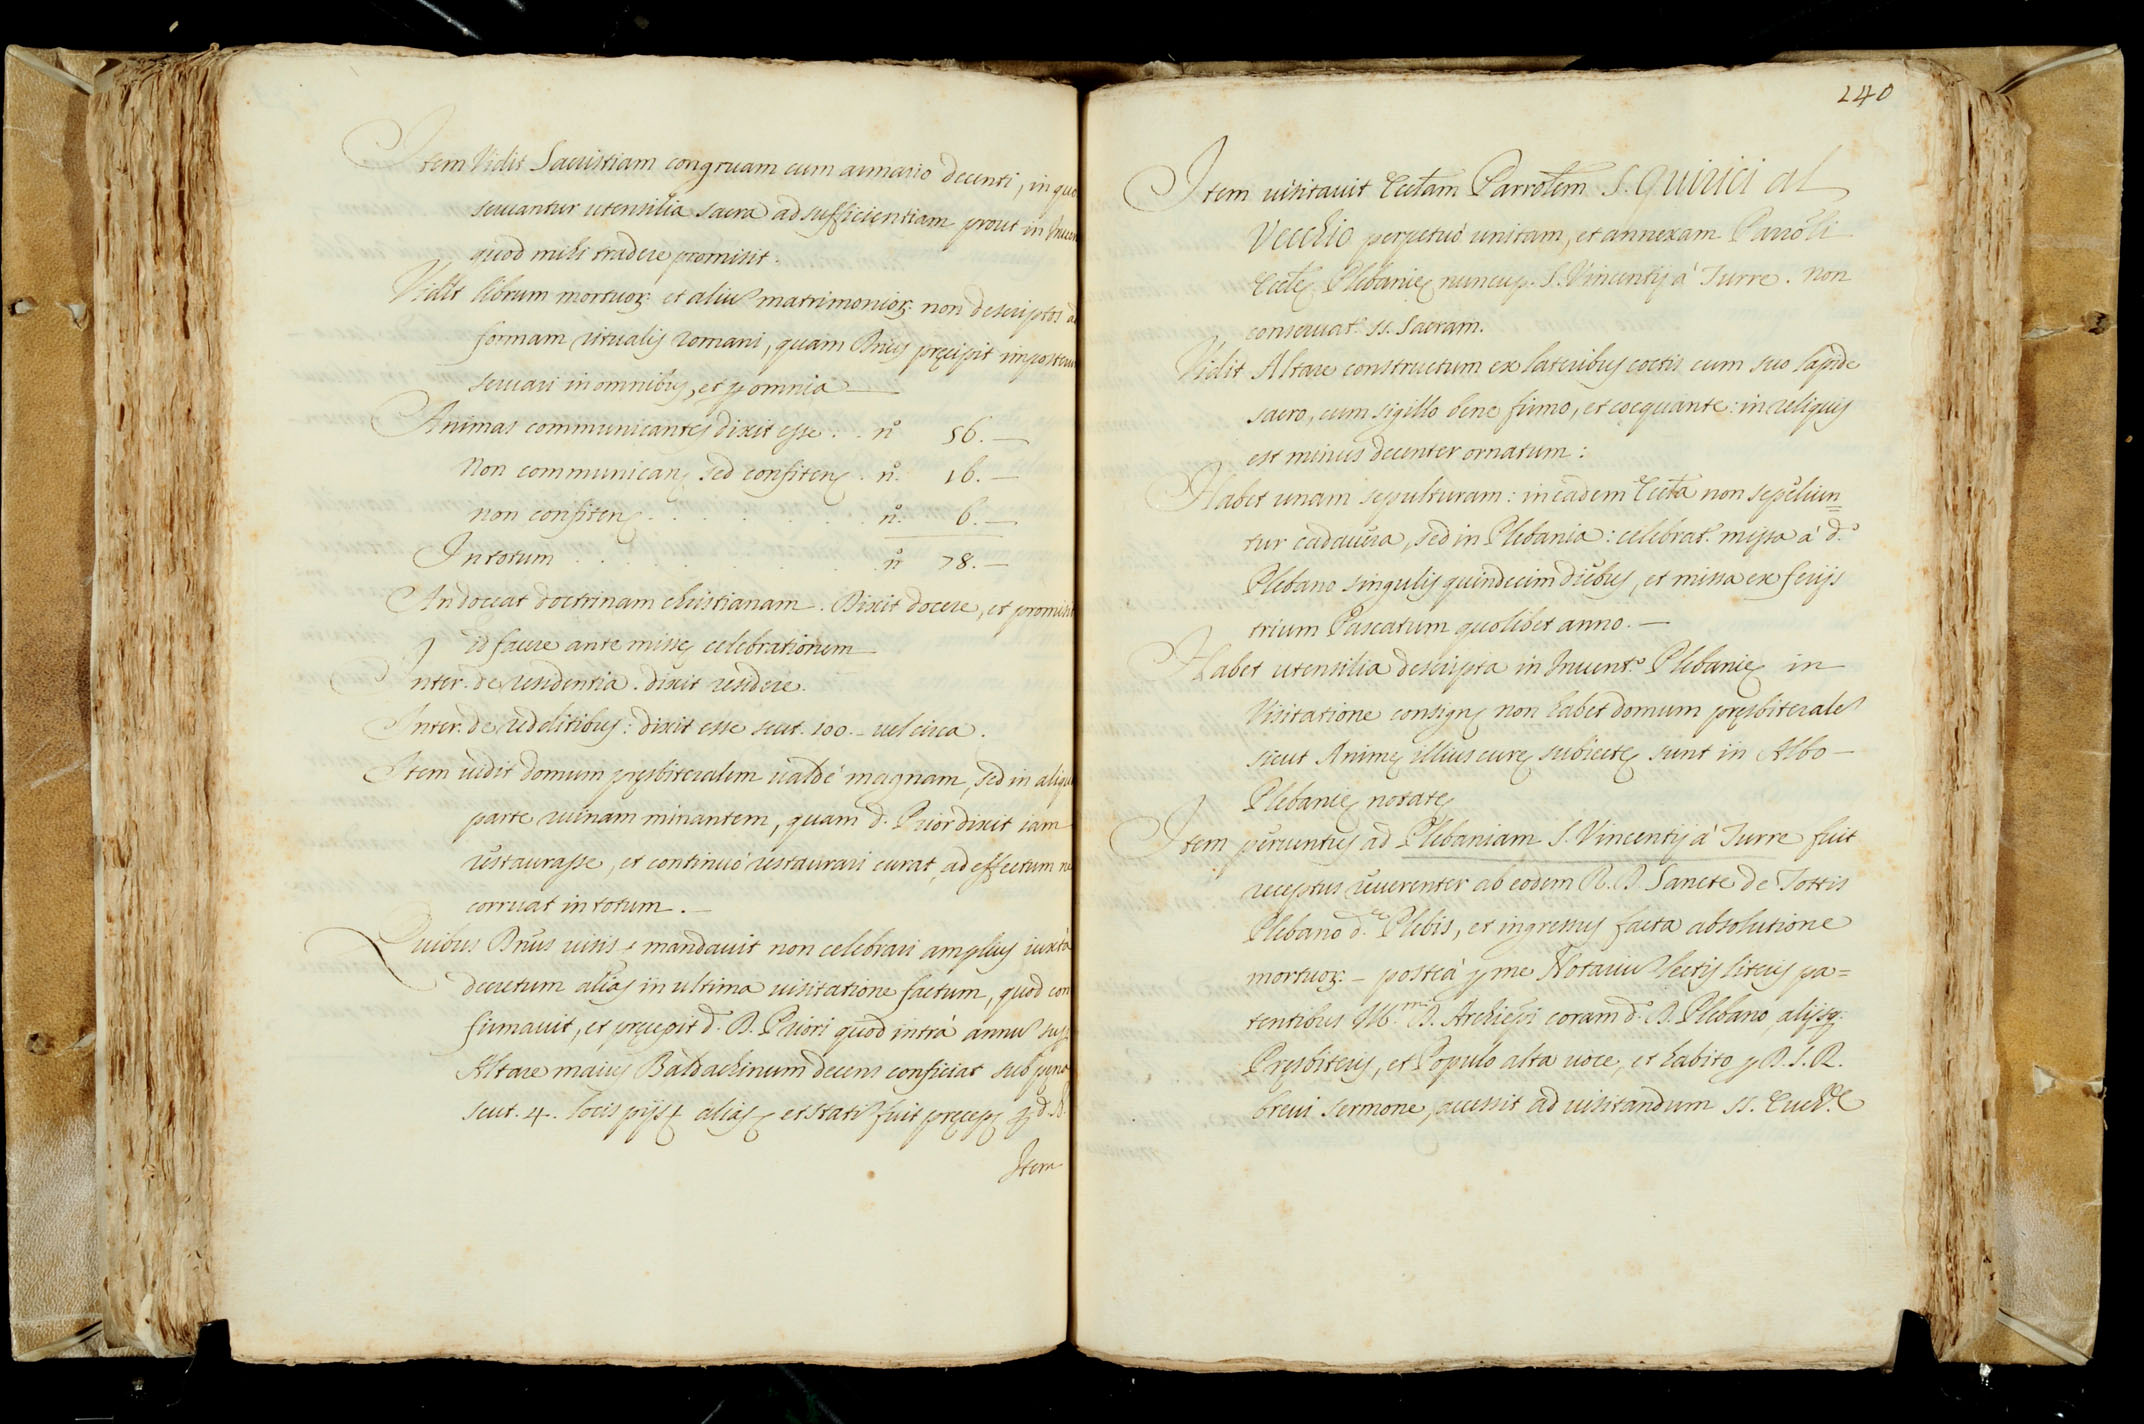 Item Vidit Sacristiam congruam cum armario decenti, in quo
seruantur utensilia sacra ad sufficientiam prout in Inuen
quod mihi tradere promisit.
Vidit librum mortuoꝝ et aliũ matrimonioꝝ non descriptos ad
formam ritualis romani, quam Dñus pręcipit imposteru
seruari in omnibus, et ꝑ omnia —
Animas communicantes dixit esse . . nº 56. —
Non communican; sed confiten; . nº. 16. —
non confiten; . . . . . . nº. 6. —
In totum . . . . . . . . nº 78. —
An doceat doctrinam christianam. Dixit docere, et promisit
id facere ante missę celebrationem —
Inter. de residentia. dixit residere.
Inter. de redditibus: dixit esse scut. 100.— uel circa.
Item uidit domum pręsbiteralem ualdè magnam, sed in aliqu
parte ruinam minantem, quam d. Prior dixit iam
restaurasse, et continuò restaurari curat, ad effectum ne
corruat in totum. —
Quibus Dñus uisis mandauit non celebrari amplius iuxtà
decretum aliàs in ultima uisitatione factum, quod con
firmauit, et pręcepit d. D. Priori quod intrà annũ sup
Altare maius Baldachinum decens conficiat sub pęna
scut. 4. locis pijs aliàs et statũ fuit pręcep; d. D.
Item
240
Item uisitauit Eccłam Parrołem S. Quirici al
Vecchio perpetuò unitam, et annexam Parroli
Eccłę Plebanię nuncup. S. Vincentij à Turre. Non
conseruat. ss. Sacram.
Vidit Altare constructum ex lateribus coctis cum suo lapide
sacro, cum sigillo bene firmo, et coequante: in reliquis
est minus decenter ornatum:
Habet unam sepulturam: in eadem Eccła non sepeliun=
tur cadauera, sed in Plebania: celebrat. missa à d.º
Plebano singulis quindecim diebus, et missa ex ferijs
trium Pascatum quolibet anno. —
Habet utensilia descripta in Inuent.º Plebanię in
Visitatione consign; non habet domum pręsbiteralẽ
sicut Animę illius curę subiectę sunt in Albo —
Plebanię notatę
Item peruentus ad Plebaniam S. Vincentij à Turre fuit
receptus reuerenter ab eodem R. D. Sancte de Tottis
Plebano d.ę Plebis, et ingressus facta absolutione
mortuoꝝ — posteà ꝑ me Notariũ lectis literis pa=
tentibus Ill.mi D. Archiepi coram d. D. Plebano alijsq.
Pręsbiteris, et Populo alta uoce, et habito ꝑ D. S. R.
breui sermone, accessit ad uisitandum ss. Euch.ę